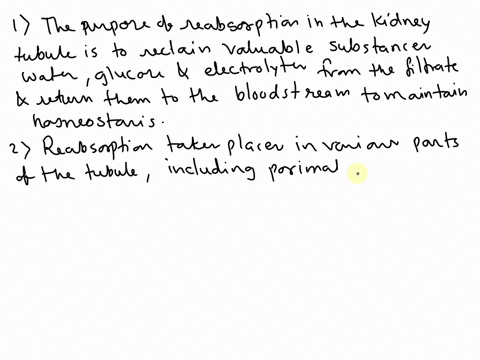 1) The purpose of reabsorption in the kidney
tubule is to reclain valuable substancer
water, glucose & electrolyter from the filtrate
& return them to the bloodstream to maintain
homeostaris.
2) Reabsorption taker placer in various parts
of the tubule, including porimal